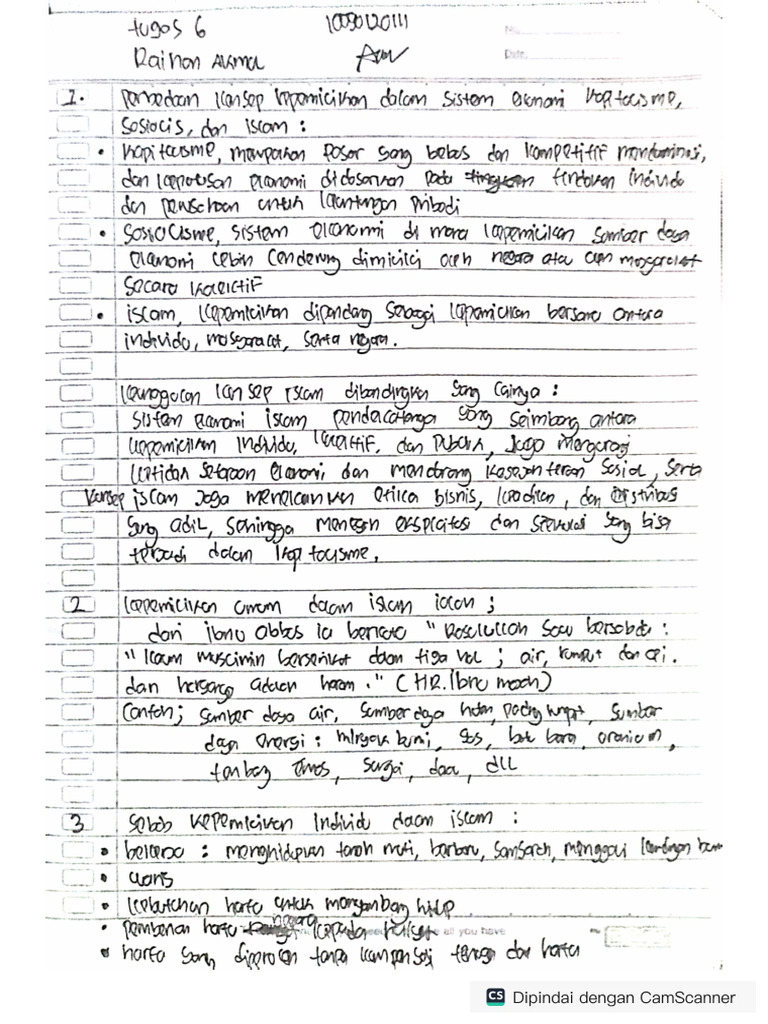 tugas 6
Raihan Akmal
No.
Date.
1. Perbedaan konsep kepemilikan dalam sistem ekonomi kapitalisme,
Sosialis, dan islam :
• kapitalisme, merupakan pasar yang bebas dan kompetitif mendominasi,
dan keputusan ekonomi didasarkan pada tindakan individu
dan perusahaan untuk keuntungan pribadi
• Sosialisme, sistem ekonomi di mana kepemilikan sumber daya
ekonomi lebih cenderung dimiliki oleh negara atau oleh masyarakat
secara kolektif
• islam, kepemilikan dipandang sebagai kepemilikan bersama antara
individu, masyarakat, serta negara.
keunggulan konsep islam dibandingkan yang lainya :
sistem ekonomi islam yang seimbang antara
kepemilikan individu, kolektif, dan publik, juga mengurangi
ketidak setaraan ekonomi, dan mendorong kesejahteraan sosial, serta
konsep islam juga menekankan etika bisnis, keadilan, dan distribusi
yang adil, sehingga eksploitasi dan spekulasi yang bisa
terjadi dalam kapitalisme.
2 kepemilikan umum dalam islam ialah ;
dari ibnu abbas ia berkata " Rasulullah saw bersabda :
" kaum muslimin berserikat dalam tiga hal ; air, rumput dan api.
dan harganya adalah haram. " ( HR. Ibnu majah )
Contoh ; sumber daya air, sumber daya hutan, padang rumput, sumber
daya energi : minyak bumi, gas, batu bara, uranium,
tambang emas, sungai, danau, dll
3 Sebab kepemilikan individu dalam islam :
• bekerja : menghidupkan tanah mati, berburu, samsarah, menggali kandungan bumi
• waris
• kebutuhan harta untuk menyambung hidup
• pemberian harta negara kepada rakyat
• harta yang diperoleh tanpa kompensasi tenaga dan harta
all you have
CS Dipindai dengan CamScanner